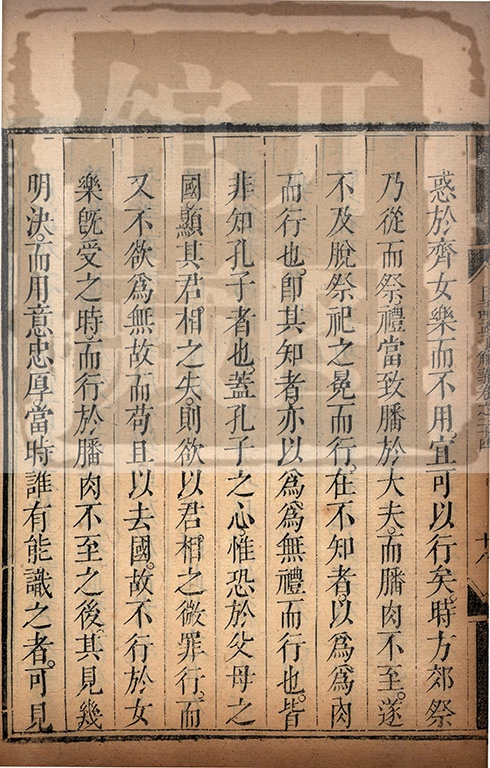 惑於齊女樂而不用。宜可以行矣。時方郊祭
乃從而祭。禮當致膰於大夫。而膰肉不至。遂
不及脫祭祀之冕而行。在不知者。以為為肉
而行也。即其知者。亦以為為無禮而行也。皆
非知孔子者也。蓋孔子之心。惟恐於父母之
國。顯其君相之失。則欲以君相之微罪行。而
又不欲為無故而苟且以去國。故不行於女
樂旣受之時。而行於膰肉不至之後。其見幾
明決。而用意忠厚。當時誰有能識之者。可見